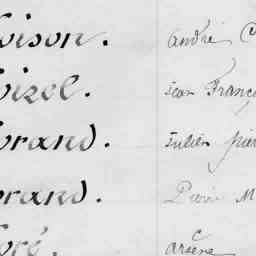 oison. André C
oizel. Jean Franç
orand. Julien pier
orand. Pierre M
oré. arsène